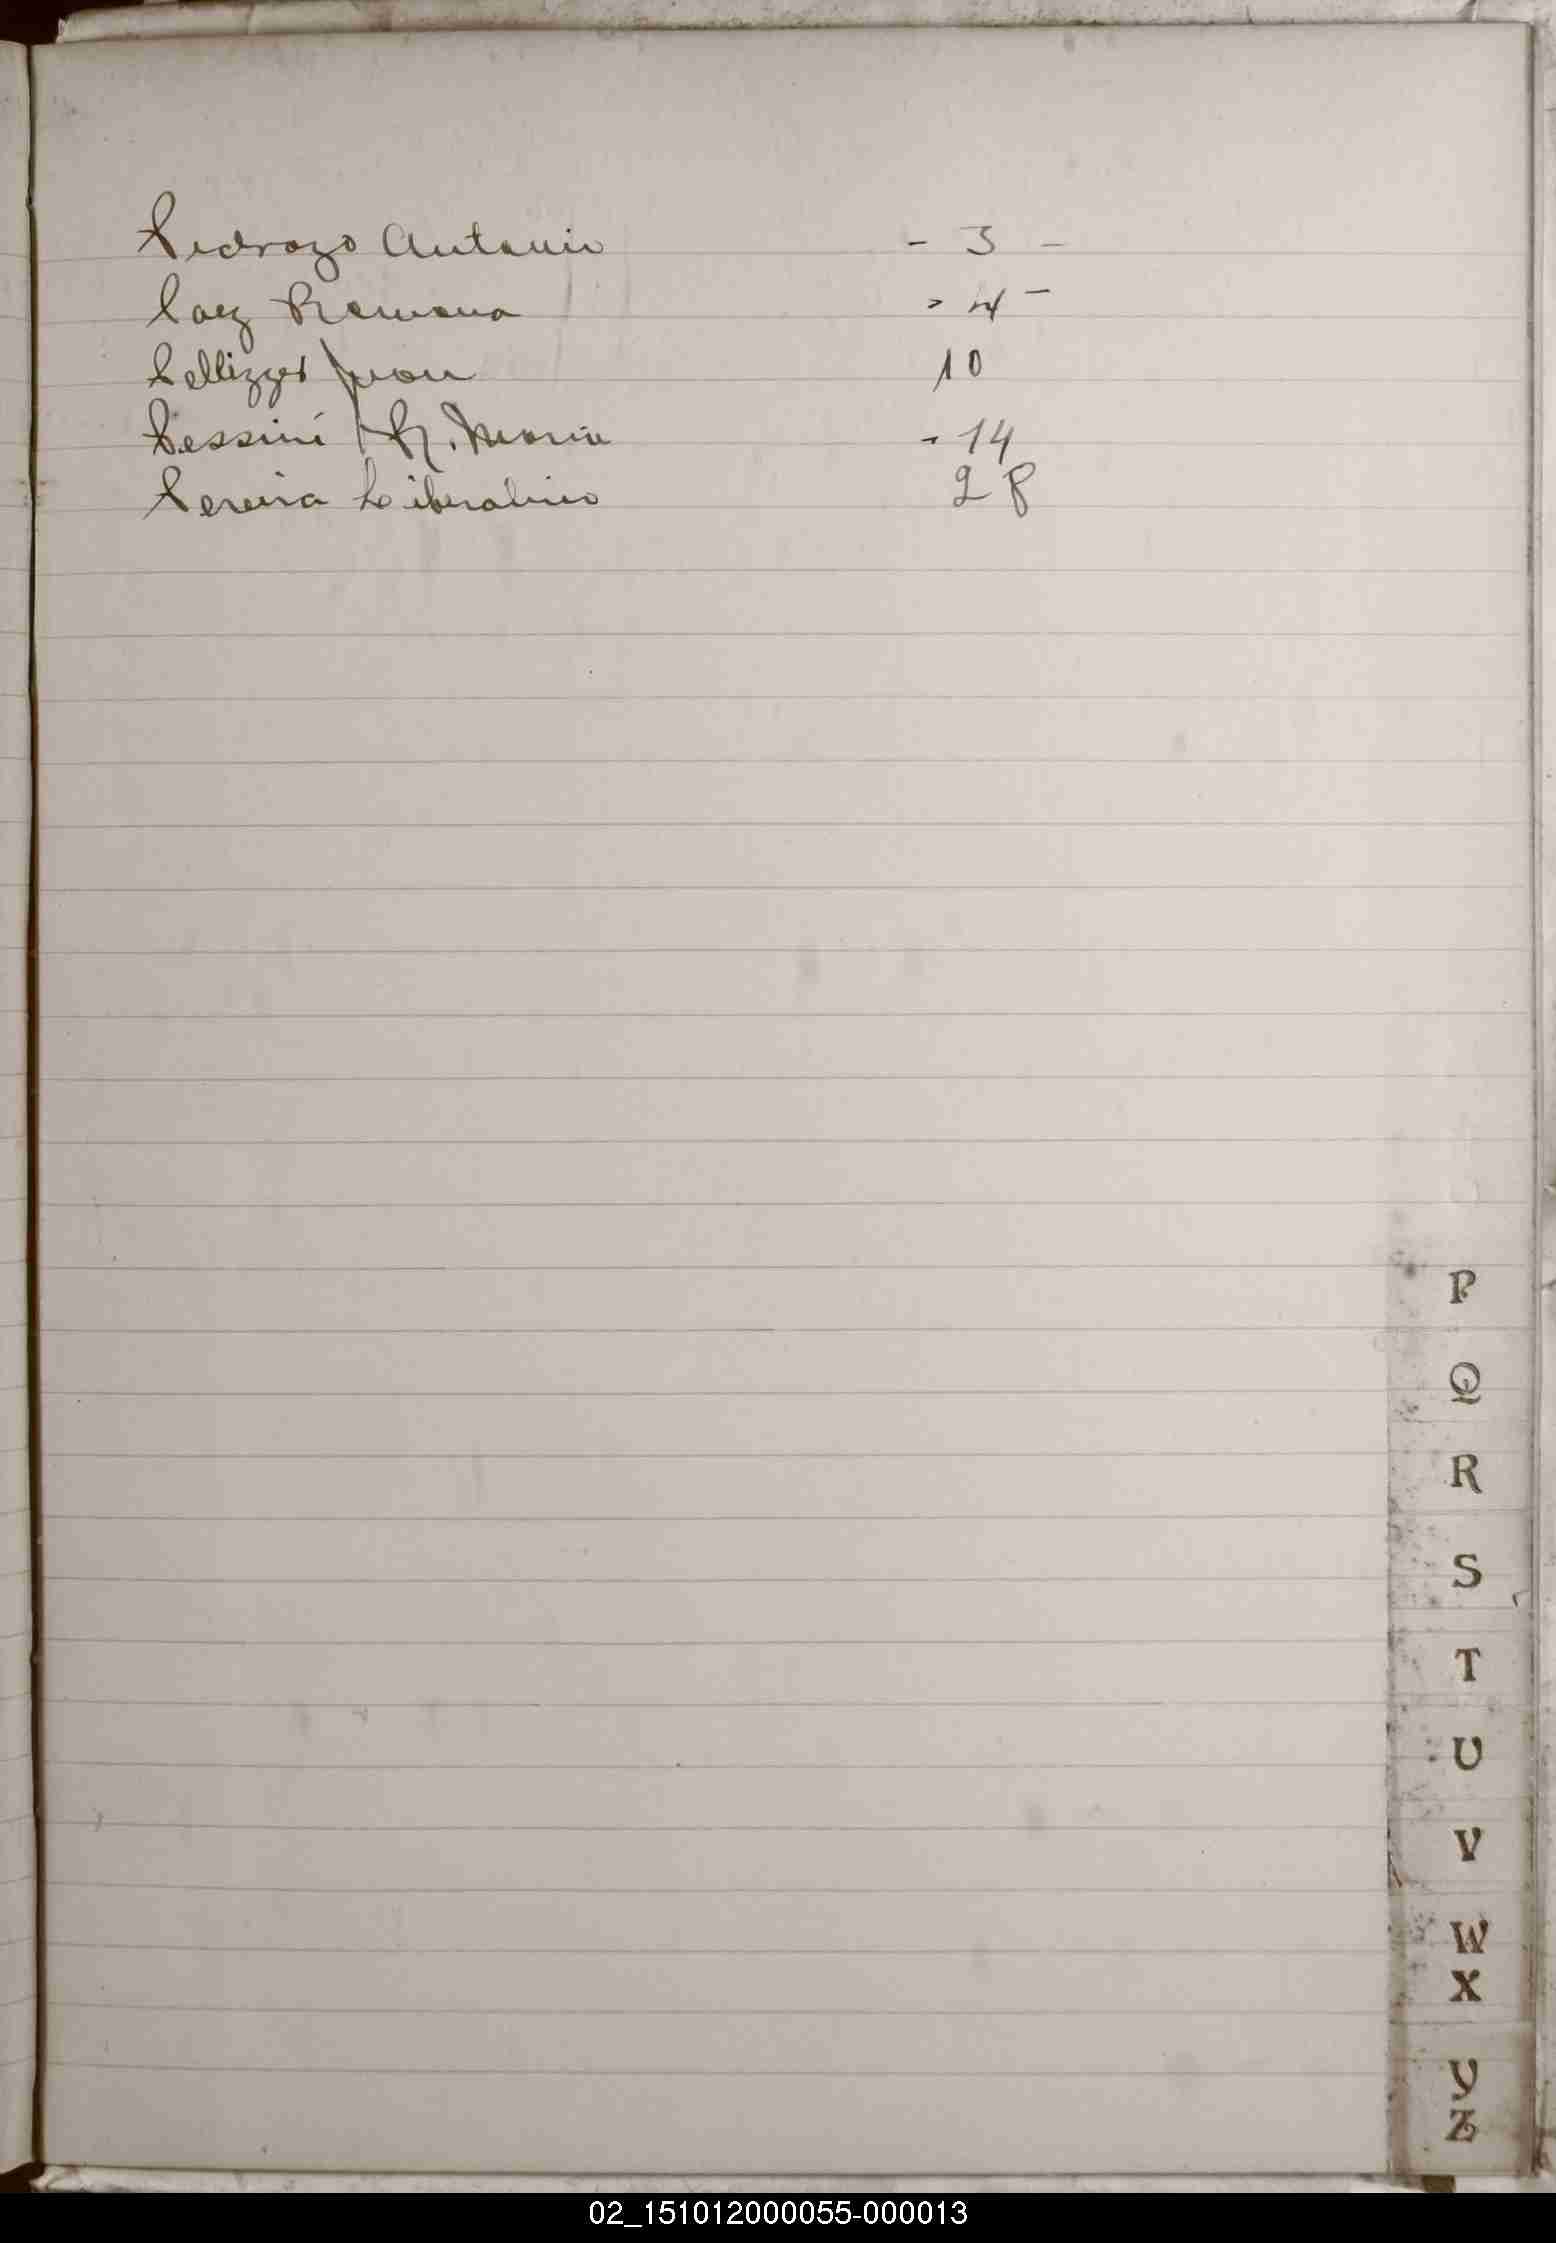 Pedrozo Antonio - 3 -
Paez Ramona - 4 -
Pellizzer Juan 10
Pessini R. Maria - 14
Pereira Liberalino 28
P
Q
R
S
T
U
V
W
X
Y
Z
02_151012000055-000013